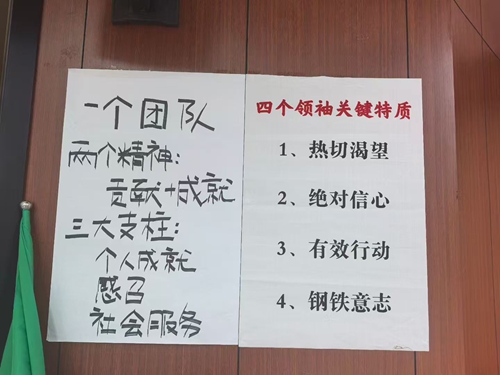 一个团队
两个精神:
贡献+成就
三大支柱:
个人成就
感召
社会服务
四个领袖关键特质
1、热切渴望
2、绝对信心
3、有效行动
4、钢铁意志